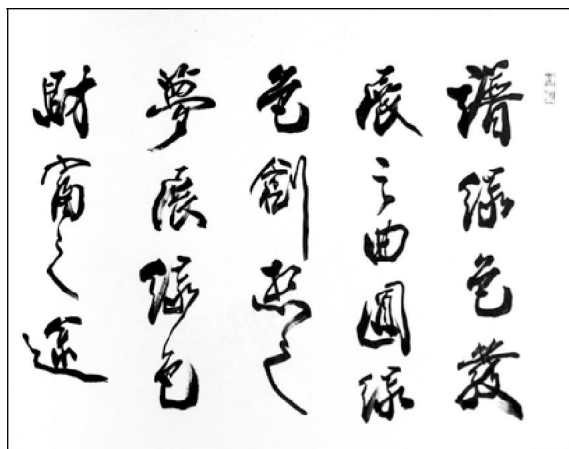 譜綠色發
展之曲圓綠
色創想之
夢展綠色
財富之途